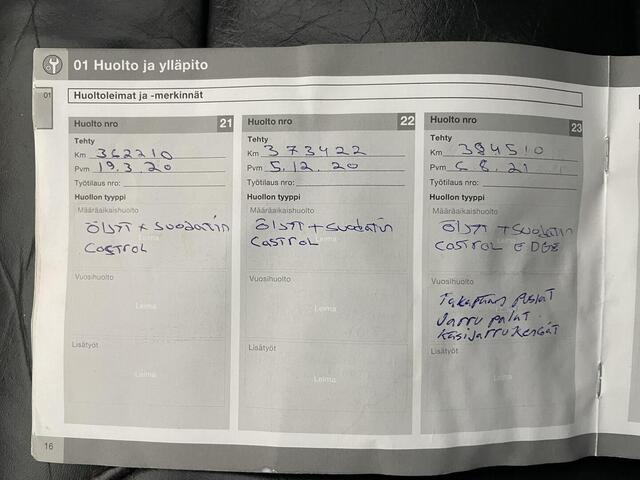 01 Huolto ja ylläpito
01
Huoltoleimat ja -merkinnät
Huolto nro 21
Tehty
Km 362210
Pvm 19.3.20
Työtilaus nro:
Huollon tyyppi
Määräaikaishuolto
ÖLJYT + SUODATIN
CASTROL
Vuosihuolto
Leima
Lisätyöt
Leima
Huolto nro 22
Tehty
Km 373422
Pvm 5.12.20
Työtilaus nro:
Huollon tyyppi
Määräaikaishuolto
ÖLJYT + SUODATIN
CASTROL
Vuosihuolto
Leima
Lisätyöt
Leima
Huolto nro 23
Tehty
Km 384510
Pvm 6 8. 21
Työtilaus nro:
Huollon tyyppi
Määräaikaishuolto
ÖLJYT + SUODATIN
CASTROL EDGE
Vuosihuolto
Jarru palat
Käsijarru kengät
Lisätyöt
Leima
16